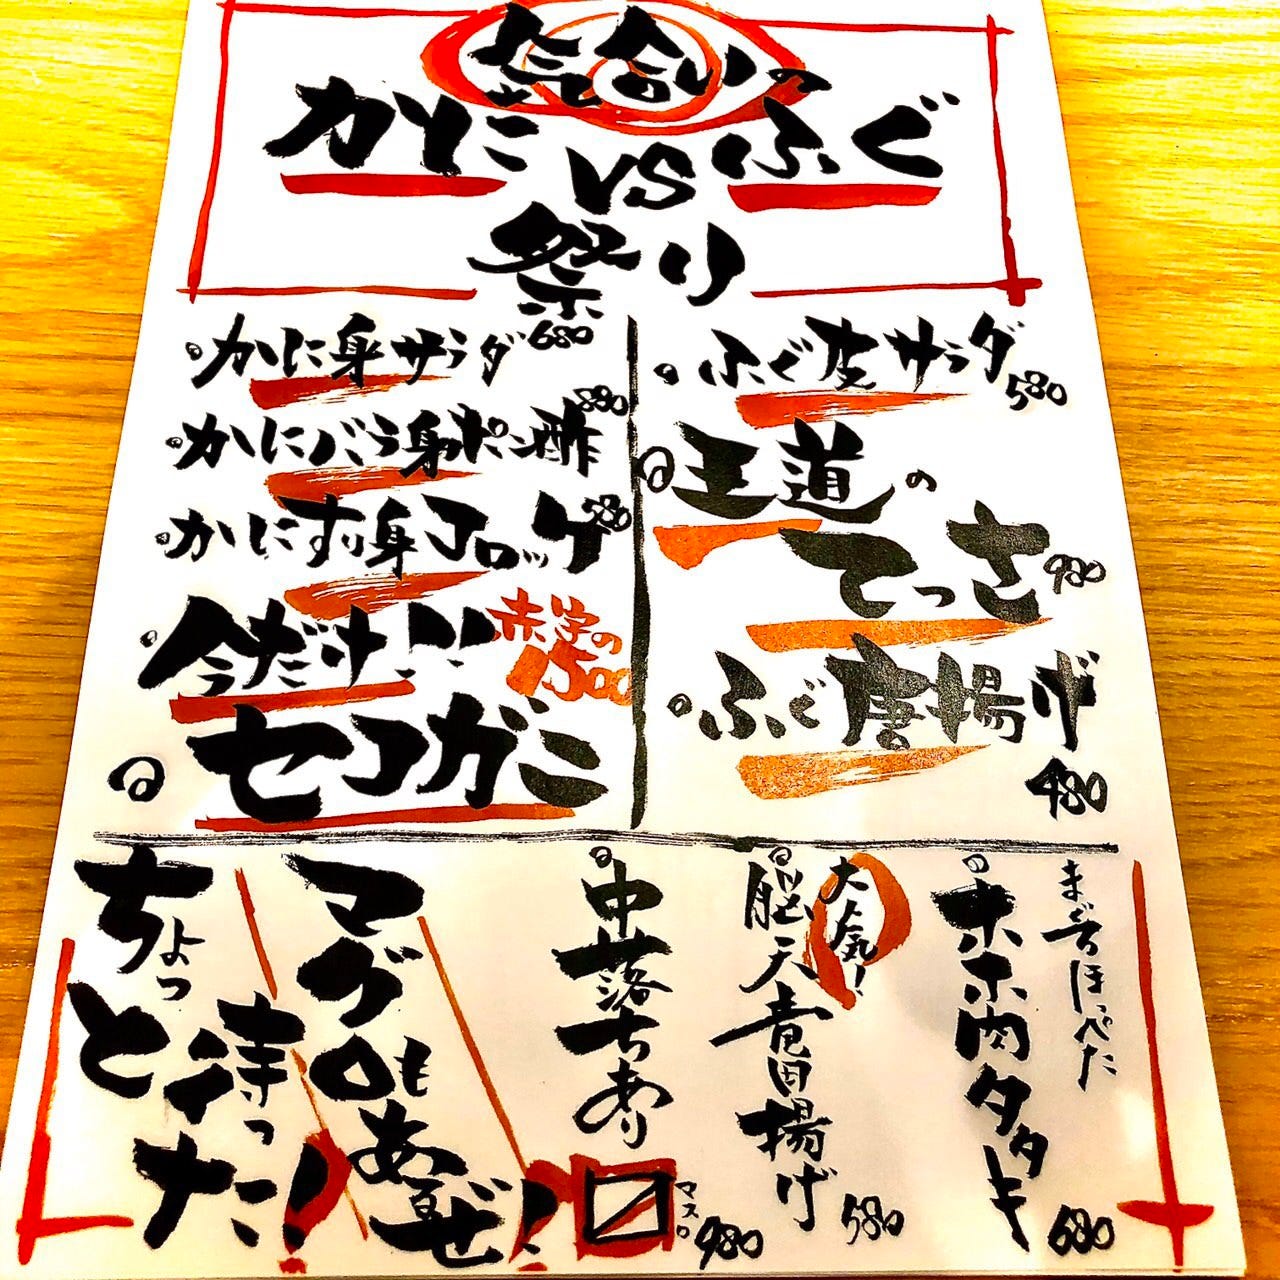 気合いの
かに vs ふぐ
祭り
かに身サラダ 680
かにバラ身ポン酢 880
かにすり身コロッケ 580
今だけ!! 赤字の1500
セコガニ
ふぐ皮サラダ 580
王道の
てっさ 980
ふぐ唐揚げ
480
ちょっと
待った!
マグロも
あるぜ!
中落ちあり
マスロ 980
大人気!
脳天竜田揚げ 580
まぐろほっぺた
ホホ肉タタキ 680